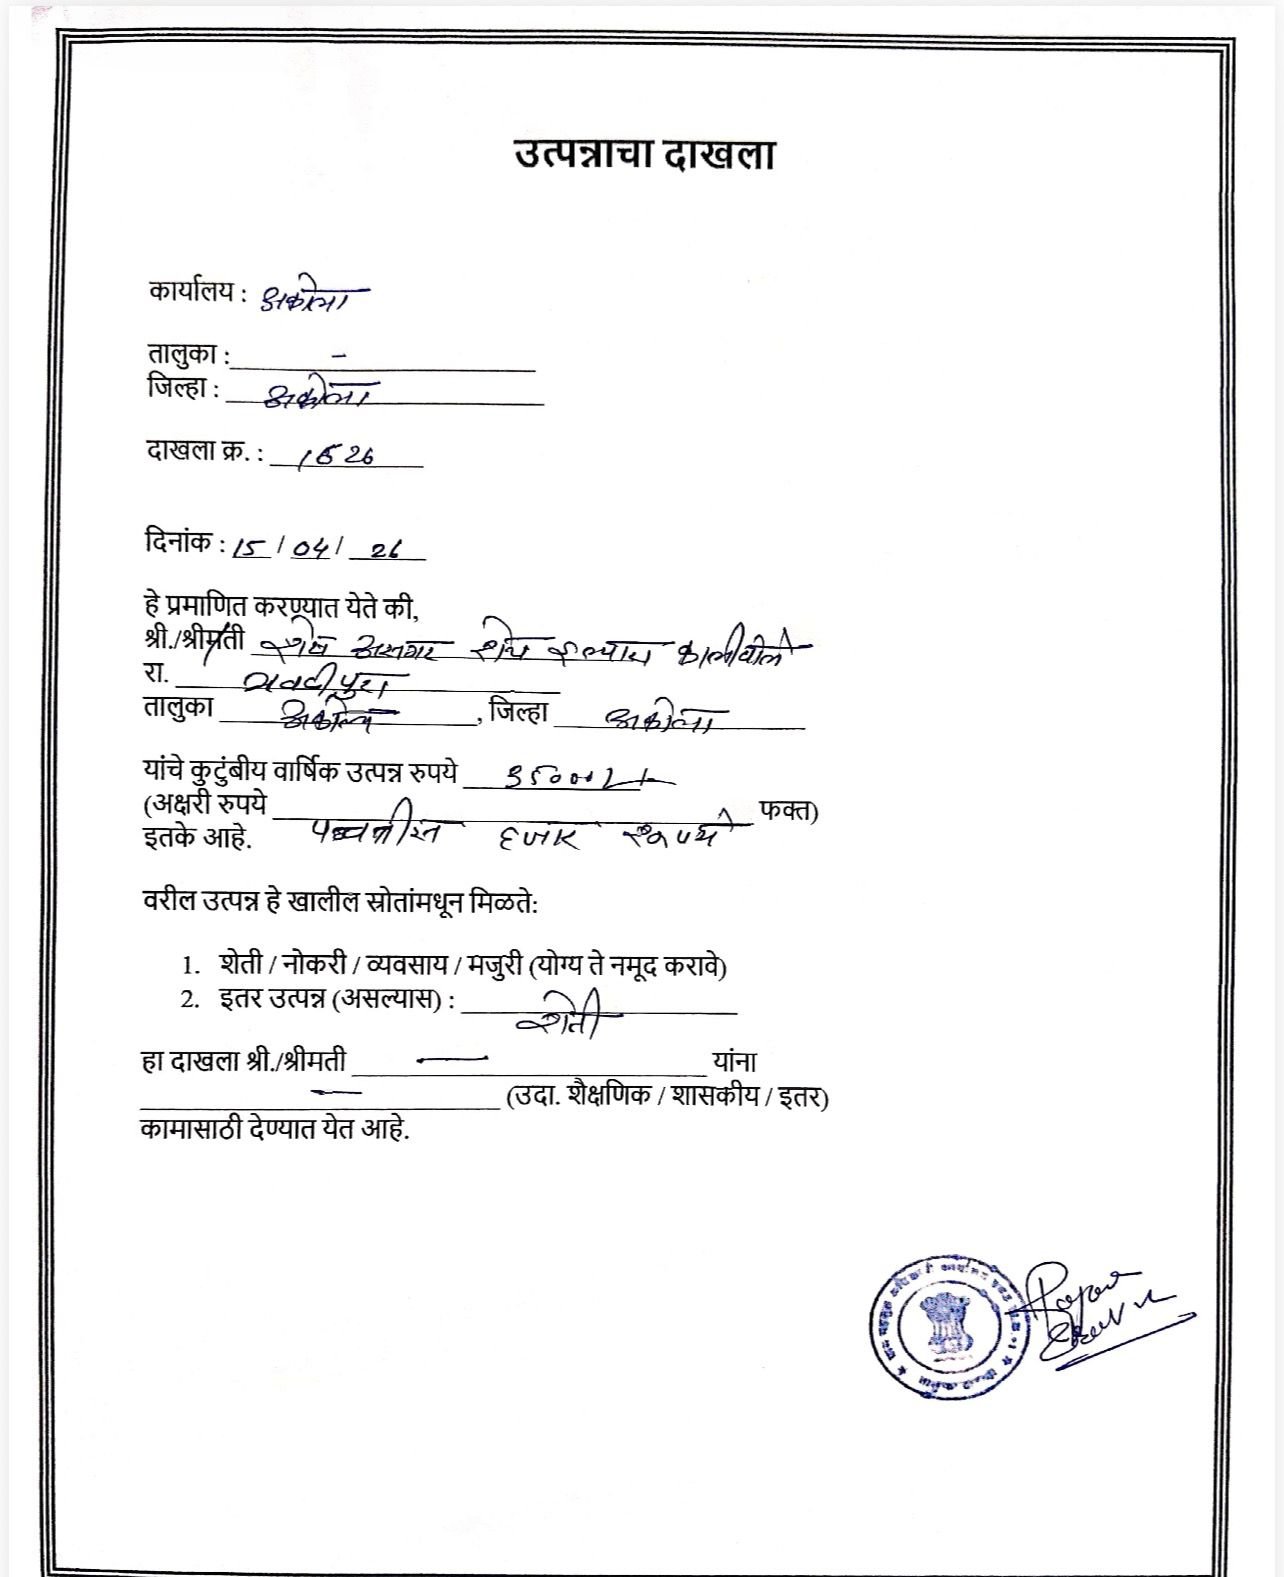 उत्पन्नाचा दाखला
कार्यालय : अकोला
तालुका : -
जिल्हा : अकोला
दाखला क्र. : 1526
दिनांक : 15/04/26
हे प्रमाणित करण्यात येते की,
श्री./श्रीमती शेख असगर शेख
रा. गवळीपुरा
तालुका अकोला, जिल्हा अकोला
यांचे कुटुंबीय वार्षिक उत्पन्न रुपये 35000/-
(अक्षरी रुपये फक्त)
इतके आहे. हजार रूपये
वरील उत्पन्न हे खालील स्रोतांमधून मिळते:
1. शेती / नोकरी / व्यवसाय / मजुरी (योग्य ते नमूद करावे)
2. इतर उत्पन्न (असल्यास) : शेती
हा दाखला श्री./श्रीमती — यांना
— (उदा. शैक्षणिक / शासकीय / इतर)
कामासाठी देण्यात येत आहे.